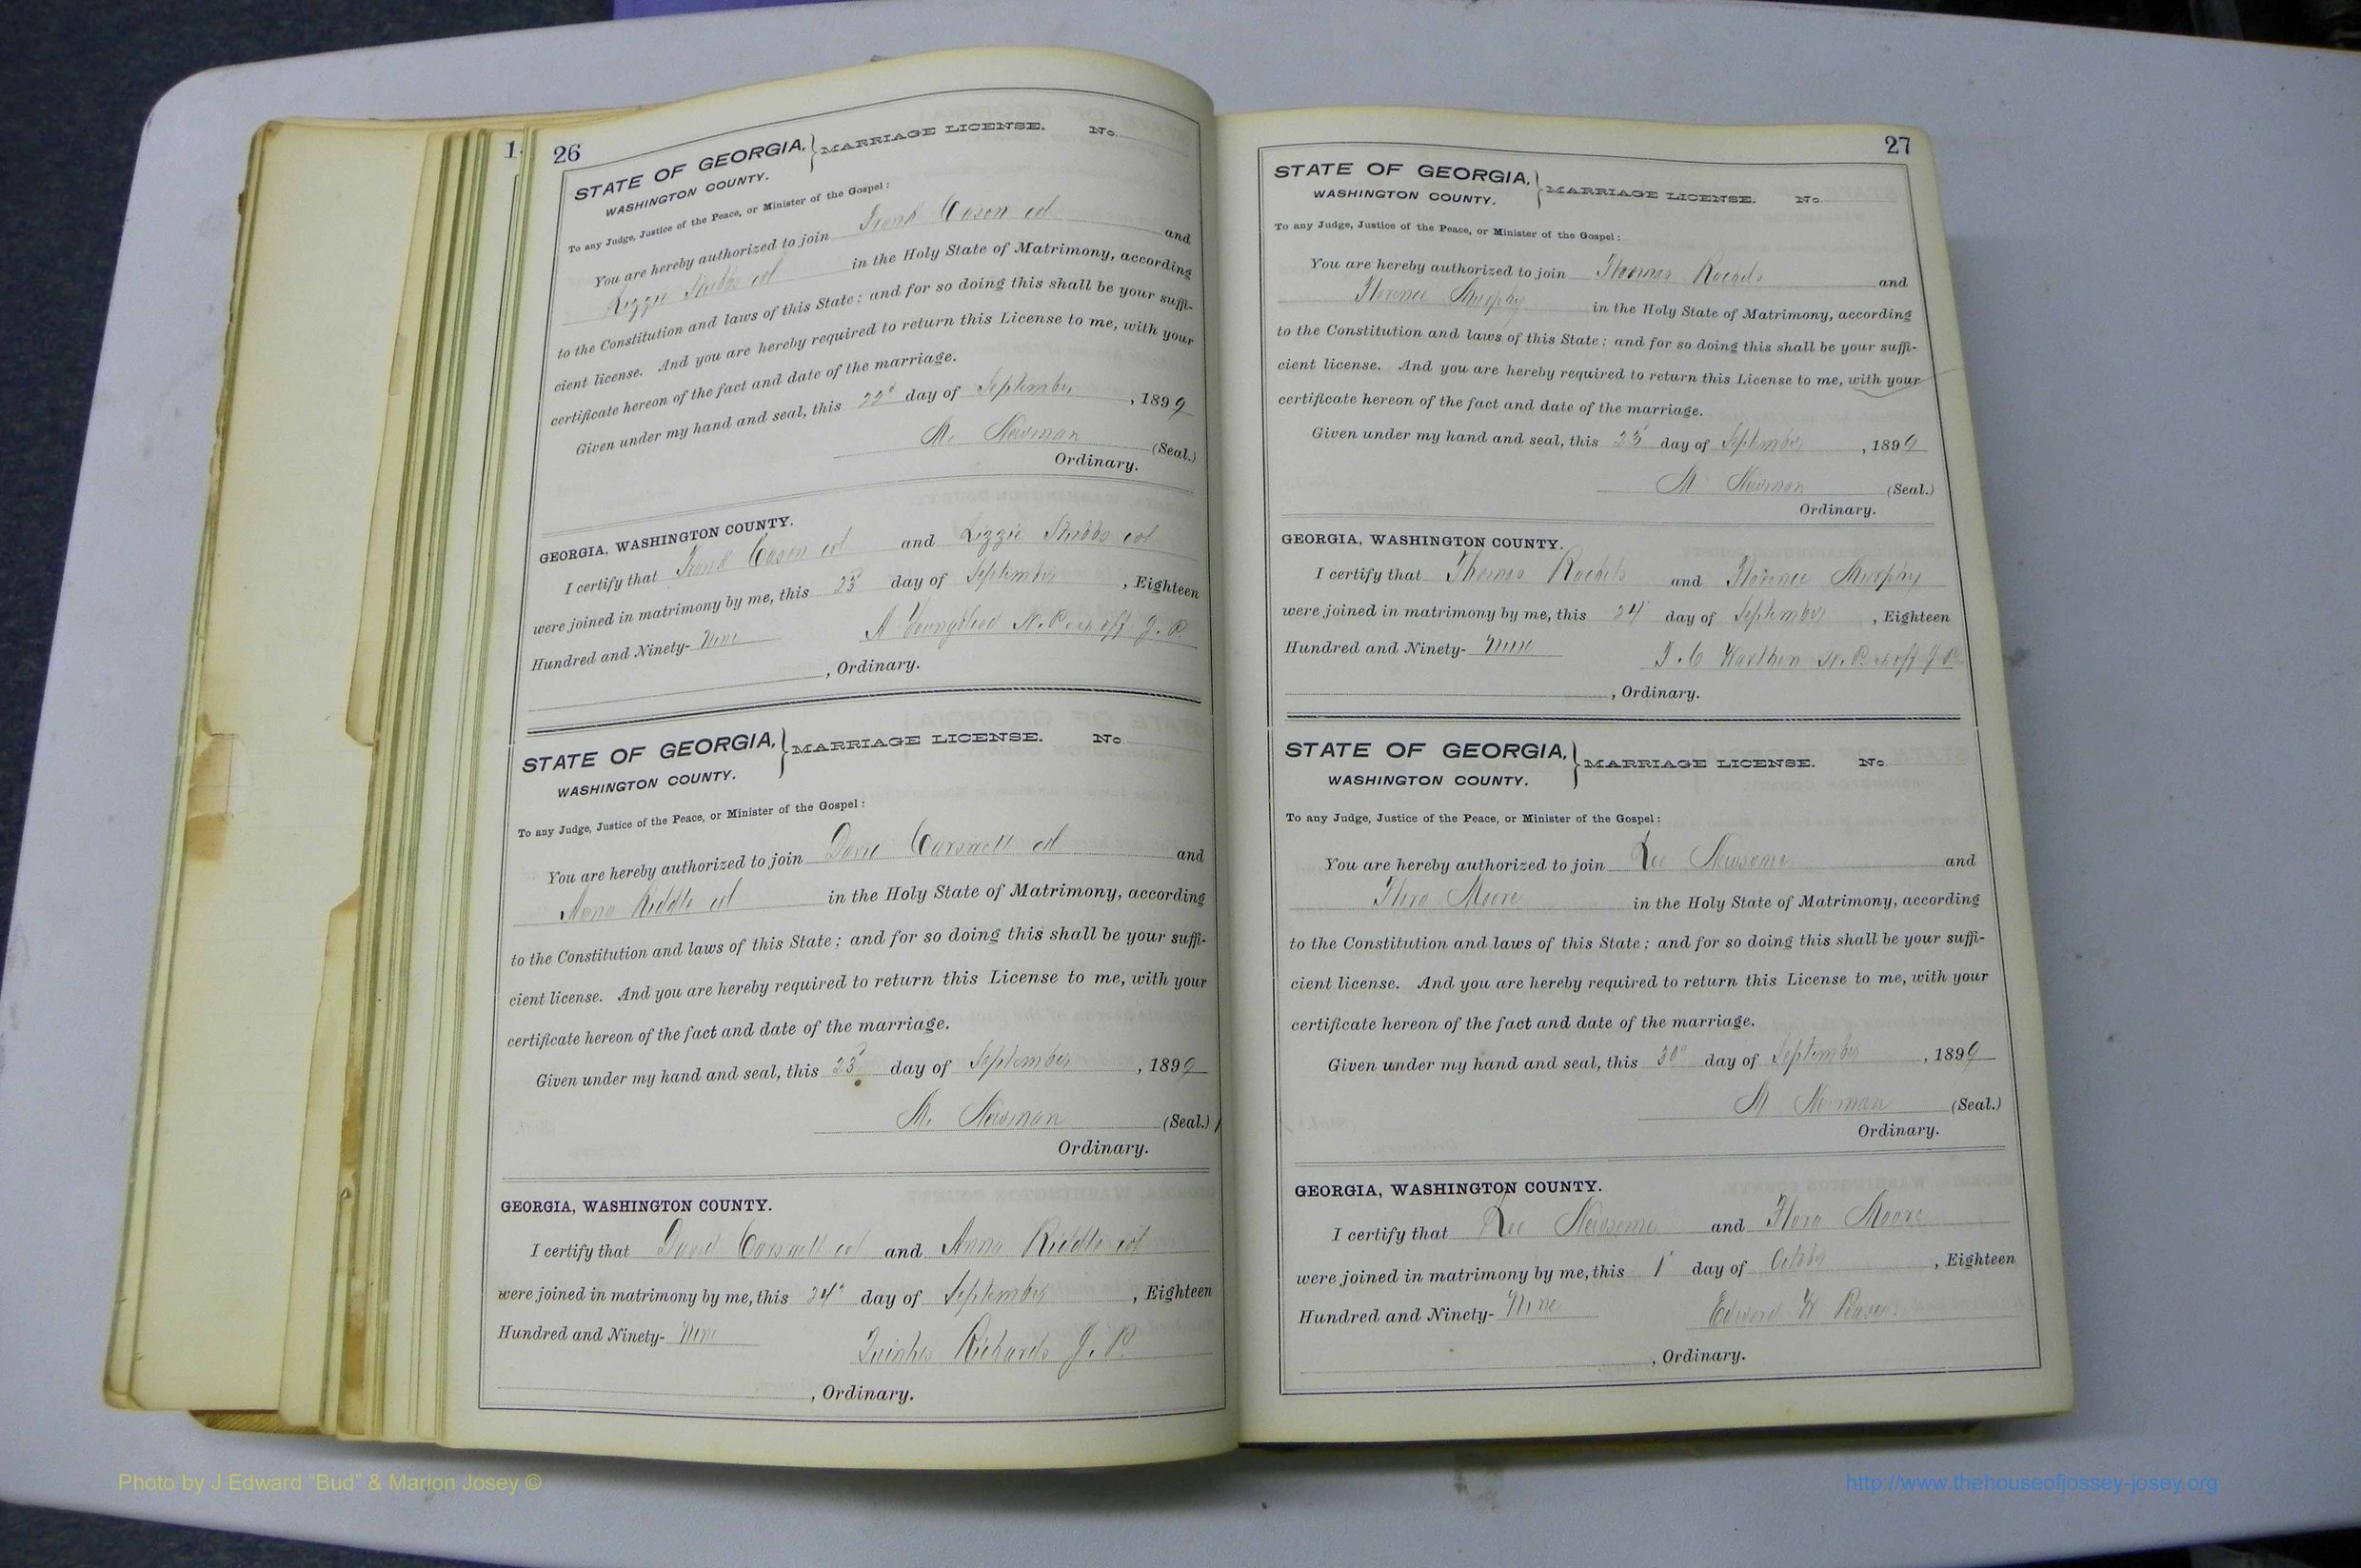 1
26
STATE OF GEORGIA, } MARRIAGE LICENSE. No.
WASHINGTON COUNTY.
To any Judge, Justice of the Peace, or Minister of the Gospel:
You are hereby authorized to join Frank Cason col and
Lizzie Stubbs col in the Holy State of Matrimony, according
to the Constitution and laws of this State; and for so doing this shall be your suffi-
cient license. And you are hereby required to return this License to me, with your
certificate hereon of the fact and date of the marriage.
Given under my hand and seal, this 22d day of September, 1899
M. Newman (Seal.)
Ordinary.
GEORGIA, WASHINGTON COUNTY.
I certify that Frank Cason col and Lizzie Stubbs col
were joined in matrimony by me, this 23 day of September, Eighteen
Hundred and Ninety- Nine A Youngblood N.P. & ex off J.P.
, Ordinary.
STATE OF GEORGIA, } MARRIAGE LICENSE. No.
WASHINGTON COUNTY.
To any Judge, Justice of the Peace, or Minister of the Gospel:
You are hereby authorized to join David Carswell col and
Anna Riddle col in the Holy State of Matrimony, according
to the Constitution and laws of this State; and for so doing this shall be your suffi-
cient license. And you are hereby required to return this License to me, with your
certificate hereon of the fact and date of the marriage.
Given under my hand and seal, this 23 day of September, 1899
M. Newman (Seal.)
Ordinary.
GEORGIA, WASHINGTON COUNTY.
I certify that David Carswell col and Anna Riddle col
were joined in matrimony by me, this 24 day of September, Eighteen
Hundred and Ninety- Nine Richards J.P.
, Ordinary.
27
STATE OF GEORGIA, } MARRIAGE LICENSE. No.
WASHINGTON COUNTY.
To any Judge, Justice of the Peace, or Minister of the Gospel:
You are hereby authorized to join Thomas and
Florence Murphy in the Holy State of Matrimony, according
to the Constitution and laws of this State; and for so doing this shall be your suffi-
cient license. And you are hereby required to return this License to me, with your
certificate hereon of the fact and date of the marriage.
Given under my hand and seal, this 23 day of September, 1899
M Newman (Seal.)
Ordinary.
GEORGIA, WASHINGTON COUNTY.
I certify that Thomas and Florence Murphy
were joined in matrimony by me, this 24 day of September, Eighteen
Hundred and Ninety- Nine T.C Warthen N.P. & ex off J P.
, Ordinary.
STATE OF GEORGIA, } MARRIAGE LICENSE. No.
WASHINGTON COUNTY.
To any Judge, Justice of the Peace, or Minister of the Gospel:
You are hereby authorized to join Lee Newsome and
Flora Moore in the Holy State of Matrimony, according
to the Constitution and laws of this State; and for so doing this shall be your suffi-
cient license. And you are hereby required to return this License to me, with your
certificate hereon of the fact and date of the marriage.
Given under my hand and seal, this 30 day of September, 1899
M Newman (Seal.)
Ordinary.
GEORGIA, WASHINGTON COUNTY.
I certify that Lee Newsome and Flora Moore
were joined in matrimony by me, this 1 day of October, Eighteen
Hundred and Ninety- Nine Edward W
, Ordinary.
Photo by J Edward "Bud" & Marion Josey ©
http://www.thehouseofjossey-josey.org